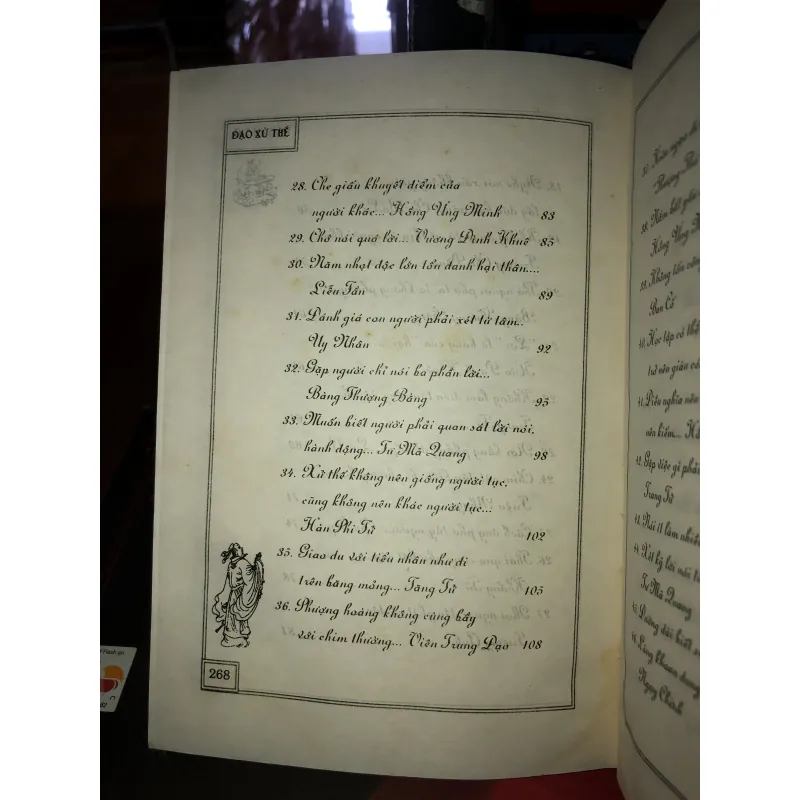 ĐẠO XỬ THẾ
28. Che giấu khuyết điểm của
người khác... Hồng Ứng Minh 83
29. Chớ nói quá lời... Vương Đình Khuê 85
30. Năm nhọt độc lớn tổn danh hại thân....
Liễu Tần 89
31. Đánh giá con người phải xét từ tâm..
Uy Nhân 92
32. Gặp người chỉ nói ba phần lời...
Bàng Thượng Bằng 95
33. Muốn biết người phải quan sát lời nói,
hành động... Tư Mã Quang 98
34. Xử thế không nên giống người tục,
cũng không nên khác người tục...
Hàn Phi Tử 102
35. Giao du với tiểu nhân như đi
trên băng mỏng... Tăng Tử 105
36. Phượng hoàng không cùng bầy
với chim thường... Viên Trung Đạo 108
268
Ban Cố
40. Học tập có thể
Trang Tử
Tư Mã Quang
Ngụy Chinh